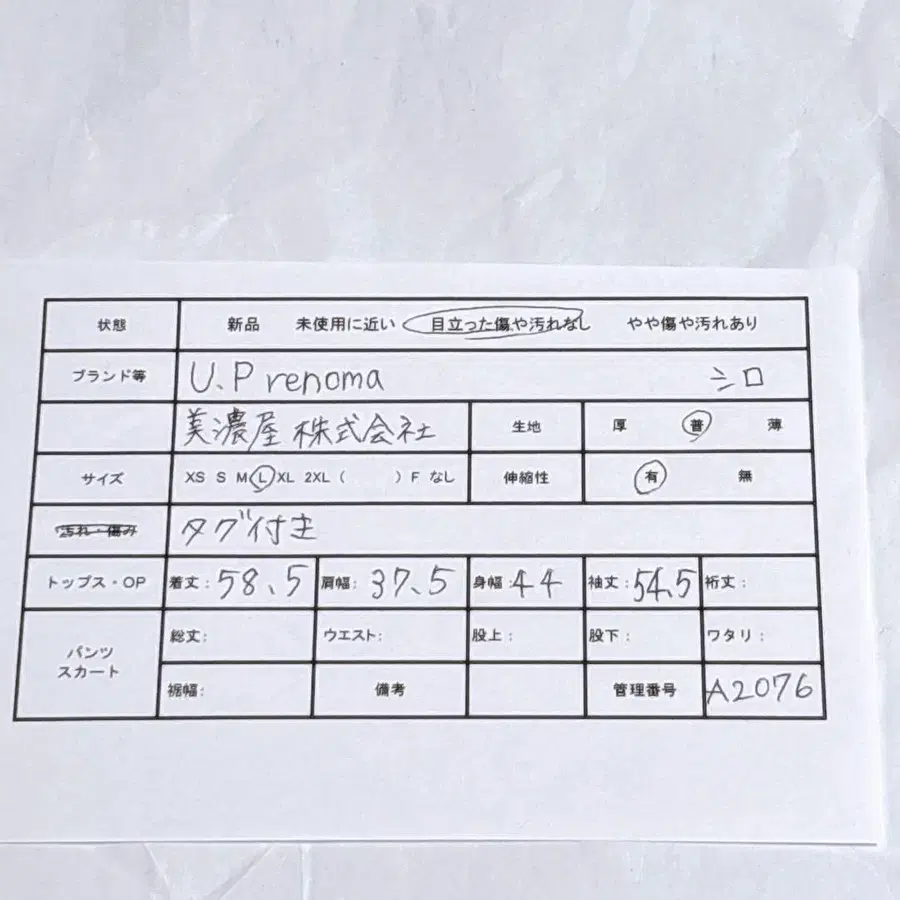 状態 新品 未使用に近い 目立った傷や汚れなし やや傷や汚れあり
ブランド等 U.P renoma シロ
美濃屋株式会社 生地 厚 普 薄
サイズ XS S M L XL 2XL ( ) F なし 伸縮性 有 無
汚れ・傷み タグ付き
トップス・OP 着丈: 58.5 肩幅: 37.5 身幅: 44 袖丈: 54.5 裄丈:
パンツ スカート 総丈: ウエスト: 股上: 股下: ワタリ:
裾幅: 備考 管理番号 A2076